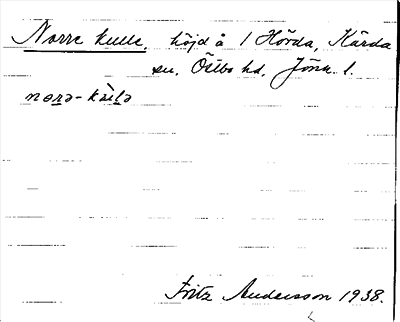 Norre kulle, höjd å 1 Hörda, Kärda
sn, Östbo hd, Jönk. l.
Fritz Andersson 1938.